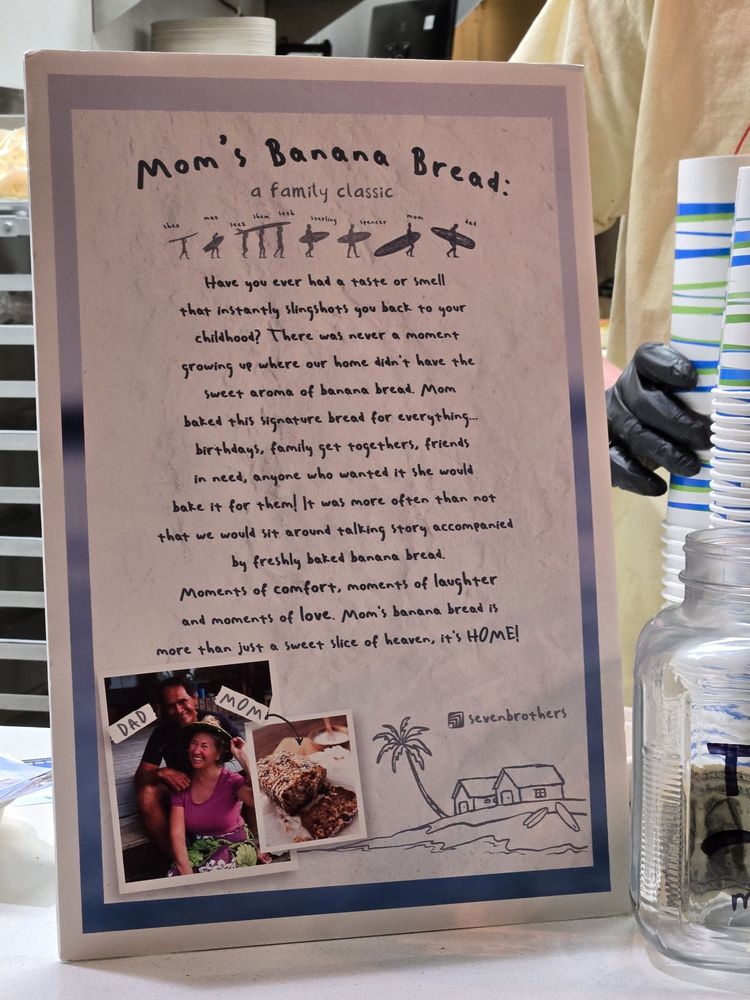 Mom's Banana Bread:
a family classic
shaz max seek shem seth sterling spencer mom dad
Have you ever had a taste or smell
that instantly slingshots you back to your
childhood? There was never a moment
growing up where our home didn't have the
sweet aroma of banana bread. Mom
baked this signature bread for everything...
birthdays, family get togethers, friends
in need, anyone who wanted it she would
bake it for them! It was more often than not
that we would sit around talking story accompanied
by freshly baked banana bread.
Moments of comfort, moments of laughter
and moments of love. Mom's banana bread is
more than just a sweet slice of heaven, it's HOME!
DAD
MOM
sevenbrothers